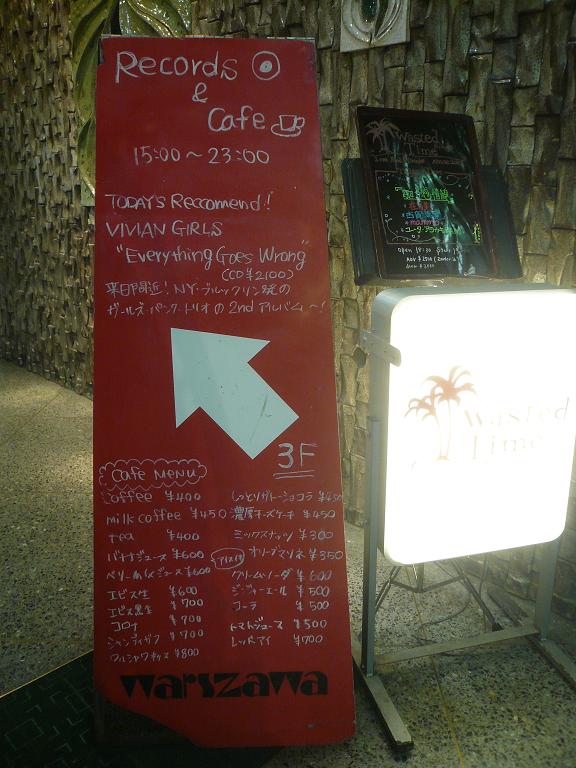 Records
&
Cafe
15:00～23:00
TODAY'S Reccomend!
VIVIAN GIRLS
"Everything Goes Wrong"
(CD ¥2100)
来日間近! NY・ブルックリン発の
ガールズ・パンク・トリオの2ndアルバム〜!
3F
Cafe MENU
Coffee ¥400
milk coffee ¥450
tea ¥400
バナナジュース ¥600
ベリーmixジュース ¥600
エビス生 ¥600
エビス黒生 ¥700
コロナ ¥700
シャンディガフ ¥700
ワルシャワキッス ¥800
しっとりガトーショコラ ¥450
濃厚チーズケーキ ¥450
ミックスナッツ ¥300
オリーブマリネ ¥350
アイス付
クリームソーダ ¥600
ジンジャーエール ¥500
コーラ ¥500
トマトジュース ¥500
レッドアイ ¥700
warszawa
Wasted
Time
Wasted
Time